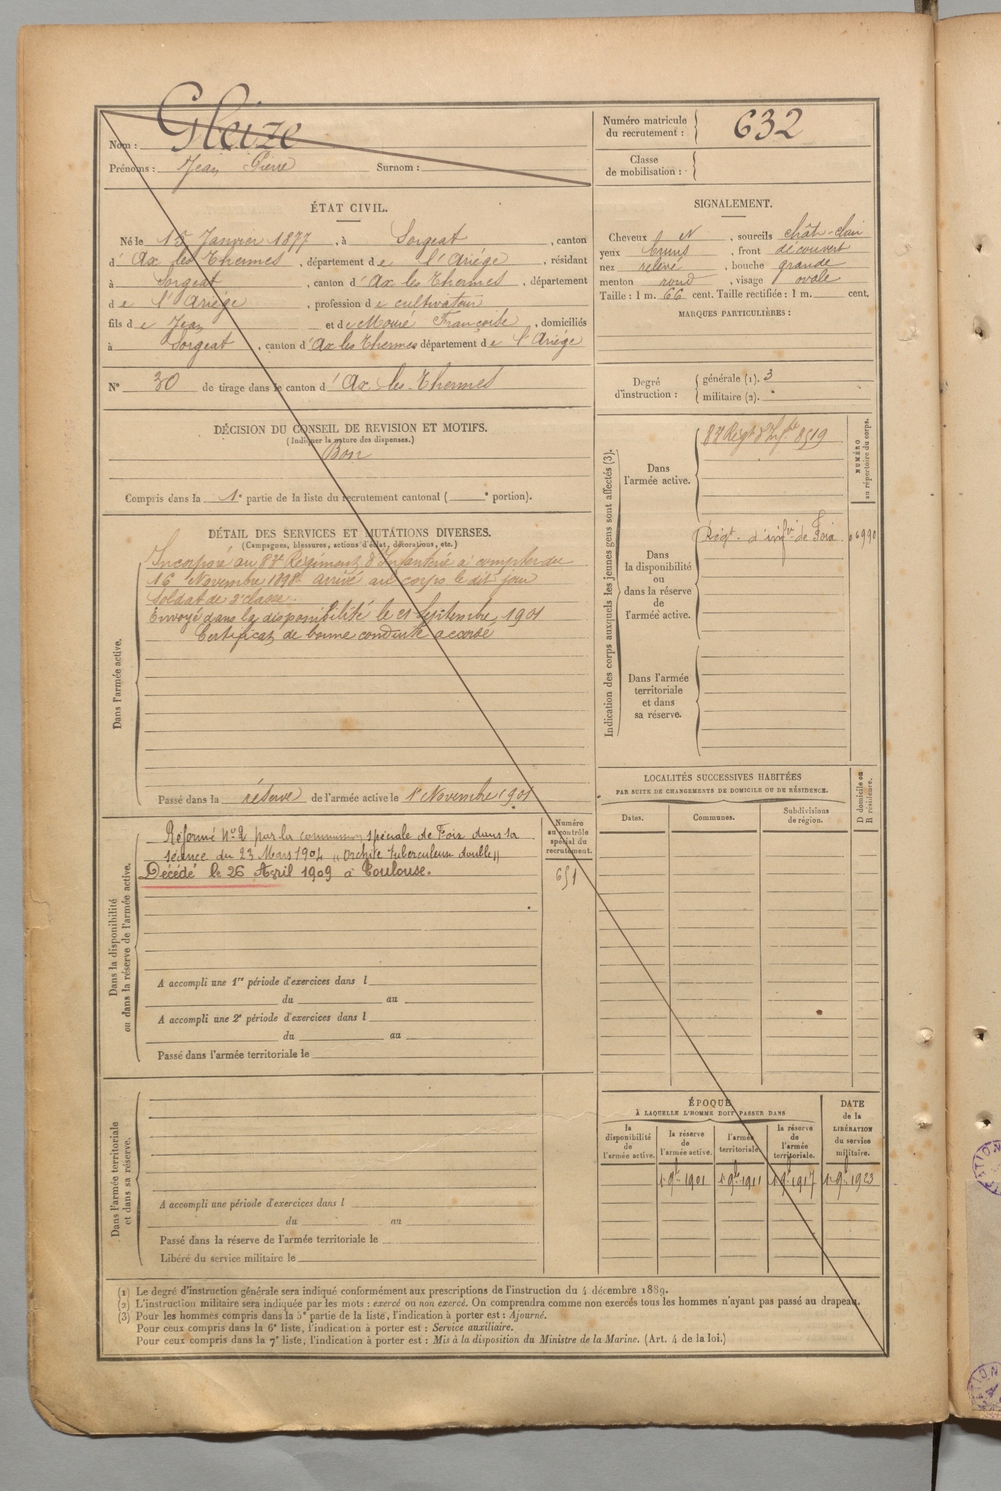 Nom : Gleize
Prénoms : Jean Pierre Surnom :
Numéro matricule du recrutement : 632
Classe de mobilisation :
ÉTAT CIVIL.
Né le 15 Janvier 1877, à Sorgeat, canton
d'Ax les Thermes, département de l'Ariège, résidant
à Sorgeat, canton d'Ax les Thermes, département
de l'Ariège, profession de cultivateur
fils de Jean et de Mouié Françoise, domiciliés
à Sorgeat, canton d'Ax les Thermes département de l'Ariège
N° 30 de tirage dans le canton d'Ax les Thermes
SIGNALEMENT.
Cheveux N, sourcils chât-clair
yeux bruns, front découvert
nez relevé, bouche grande
menton rond, visage ovale
Taille : 1 m. 66 cent. Taille rectifiée : 1 m. cent.
MARQUES PARTICULIÈRES :
Degré d'instruction : générale (1). 3
militaire (2).
DÉCISION DU CONSEIL DE REVISION ET MOTIFS.
(Indiquer la nature des dispenses.)
Bon
Compris dans la 1e partie de la liste du recrutement cantonal ( e portion).
DÉTAIL DES SERVICES ET MUTATIONS DIVERSES.
(Campagnes, blessures, actions d'éclat, décorations, etc.)
Dans l'armée active.
Incorporé au 83e Régiment d'Infanterie à compter du
16 Novembre 1898 arrivé au corps le dit jour
soldat de 2e classe.
Envoyé dans la disponibilité le 21 Septembre 1901
Certificat de bonne conduite accordé
Passé dans la réserve de l'armée active le 1r Novembre 1901
Indication des corps auxquels les jeunes gens sont affectés (3).
NUMÉRO au répertoire du corps.
Dans l'armée active.
83 Régt d'Infie 8519
Dans la disponibilité ou dans la réserve de l'armée active.
Régt d'infie de Foix 06990
Dans l'armée territoriale et dans sa réserve.
LOCALITÉS SUCCESSIVES HABITÉES
PAR SUITE DE CHANGEMENTS DE DOMICILE OU DE RÉSIDENCE.
Dates.
Communes.
Subdivisions de région.
D domicile ou R résidence.
Dans la disponibilité ou dans la réserve de l'armée active.
Numéro au contrôle spécial du recrutement.
651
Réformé No 2 par la commission spéciale de Foix dans sa
séance du 23 Mars 1904 "Orchite tuberculeuse double"
Décédé le 26 Avril 1909 à Toulouse.
A accompli une 1re période d'exercices dans l
du au
A accompli une 2e période d'exercices dans l
du au
Passé dans l'armée territoriale le
Dans l'armée territoriale et dans sa réserve.
A accompli une période d'exercices dans l
du au
Passé dans la réserve de l'armée territoriale le
Libéré du service militaire le
ÉPOQUE
À LAQUELLE L'HOMME DOIT PASSER DANS
la disponibilité de l'armée active.
la réserve de l'armée active.
l'armée territoriale.
la réserve de l'armée territoriale.
DATE de la LIBÉRATION du service militaire.
1r 9bre 1901
1r 9bre 1911
1r 9bre 1917
1r 9bre 1923
(1) Le degré d'instruction générale sera indiqué conformément aux prescriptions de l'instruction du 4 décembre 1889.
(2) L'instruction militaire sera indiquée par les mots : exercé ou non exercé. On comprendra comme non exercés tous les hommes n'ayant pas passé au drapeau.
(3) Pour les hommes compris dans la 5e partie de la liste, l'indication à porter est : Ajourné.
Pour ceux compris dans la 6e liste, l'indication à porter est : Service auxiliaire.
Pour ceux compris dans la 7e liste, l'indication à porter est : Mis à la disposition du Ministre de la Marine. (Art. 4 de la loi.)